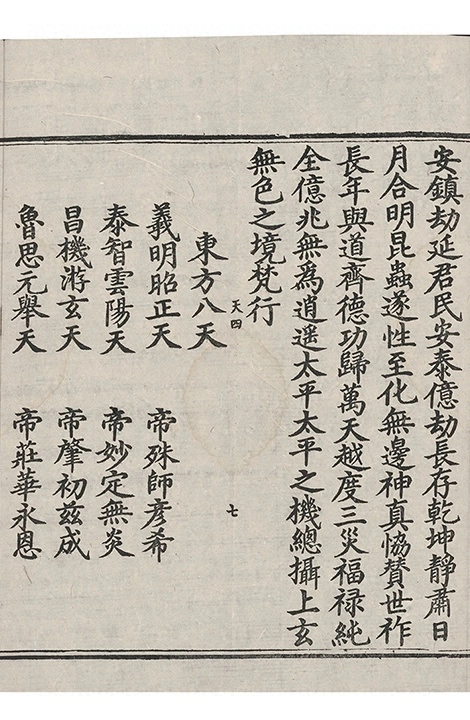 安鎮劫延君民安泰億劫長存乾坤靜肅日
月合明昆蟲遂性至化無邊神真恊賛世祚
長年與道齊德功歸萬天越度三災福禄純
全億兆無為逍遥太平太平之機總攝上玄
無色之境梵行
天四
七
東方八天
義明昭正天 帝殊師彦希
泰智雲陽天 帝妙定無炎
昌機游玄天 帝肇初兹成
魯思元舉天 帝莊華永恩